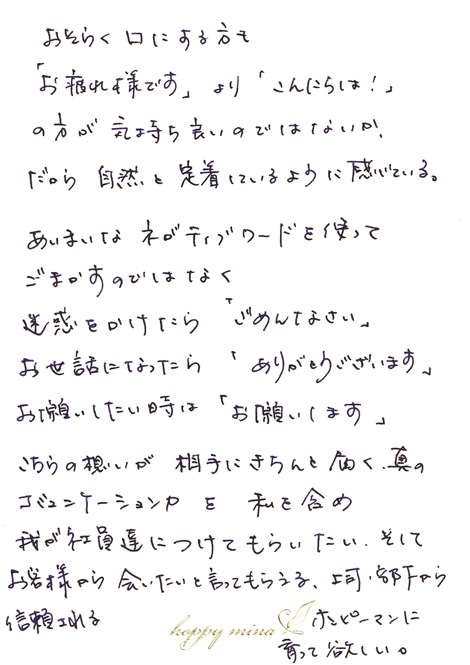 おそらく口にする方も
「お疲れ様です」より「こんにちは!」
の方が気持ち良いのではないか、
だから自然と定着しているように感じている。
あいまいなネガティブワードを使って
ごまかすのではなく
迷惑をかけたら「ごめんなさい」
お世話になったら「ありがとうございます」
お願いしたい時は「お願いします」
こちらの想いが相手にきちんと届く、真の
コミュニケーション力を私を含め
我が社員達につけてもらいたい。そして
お客様から会いたいと言ってもらえる、上司・部下から
信頼される happy mina ホンピーマンに
育って欲しい。